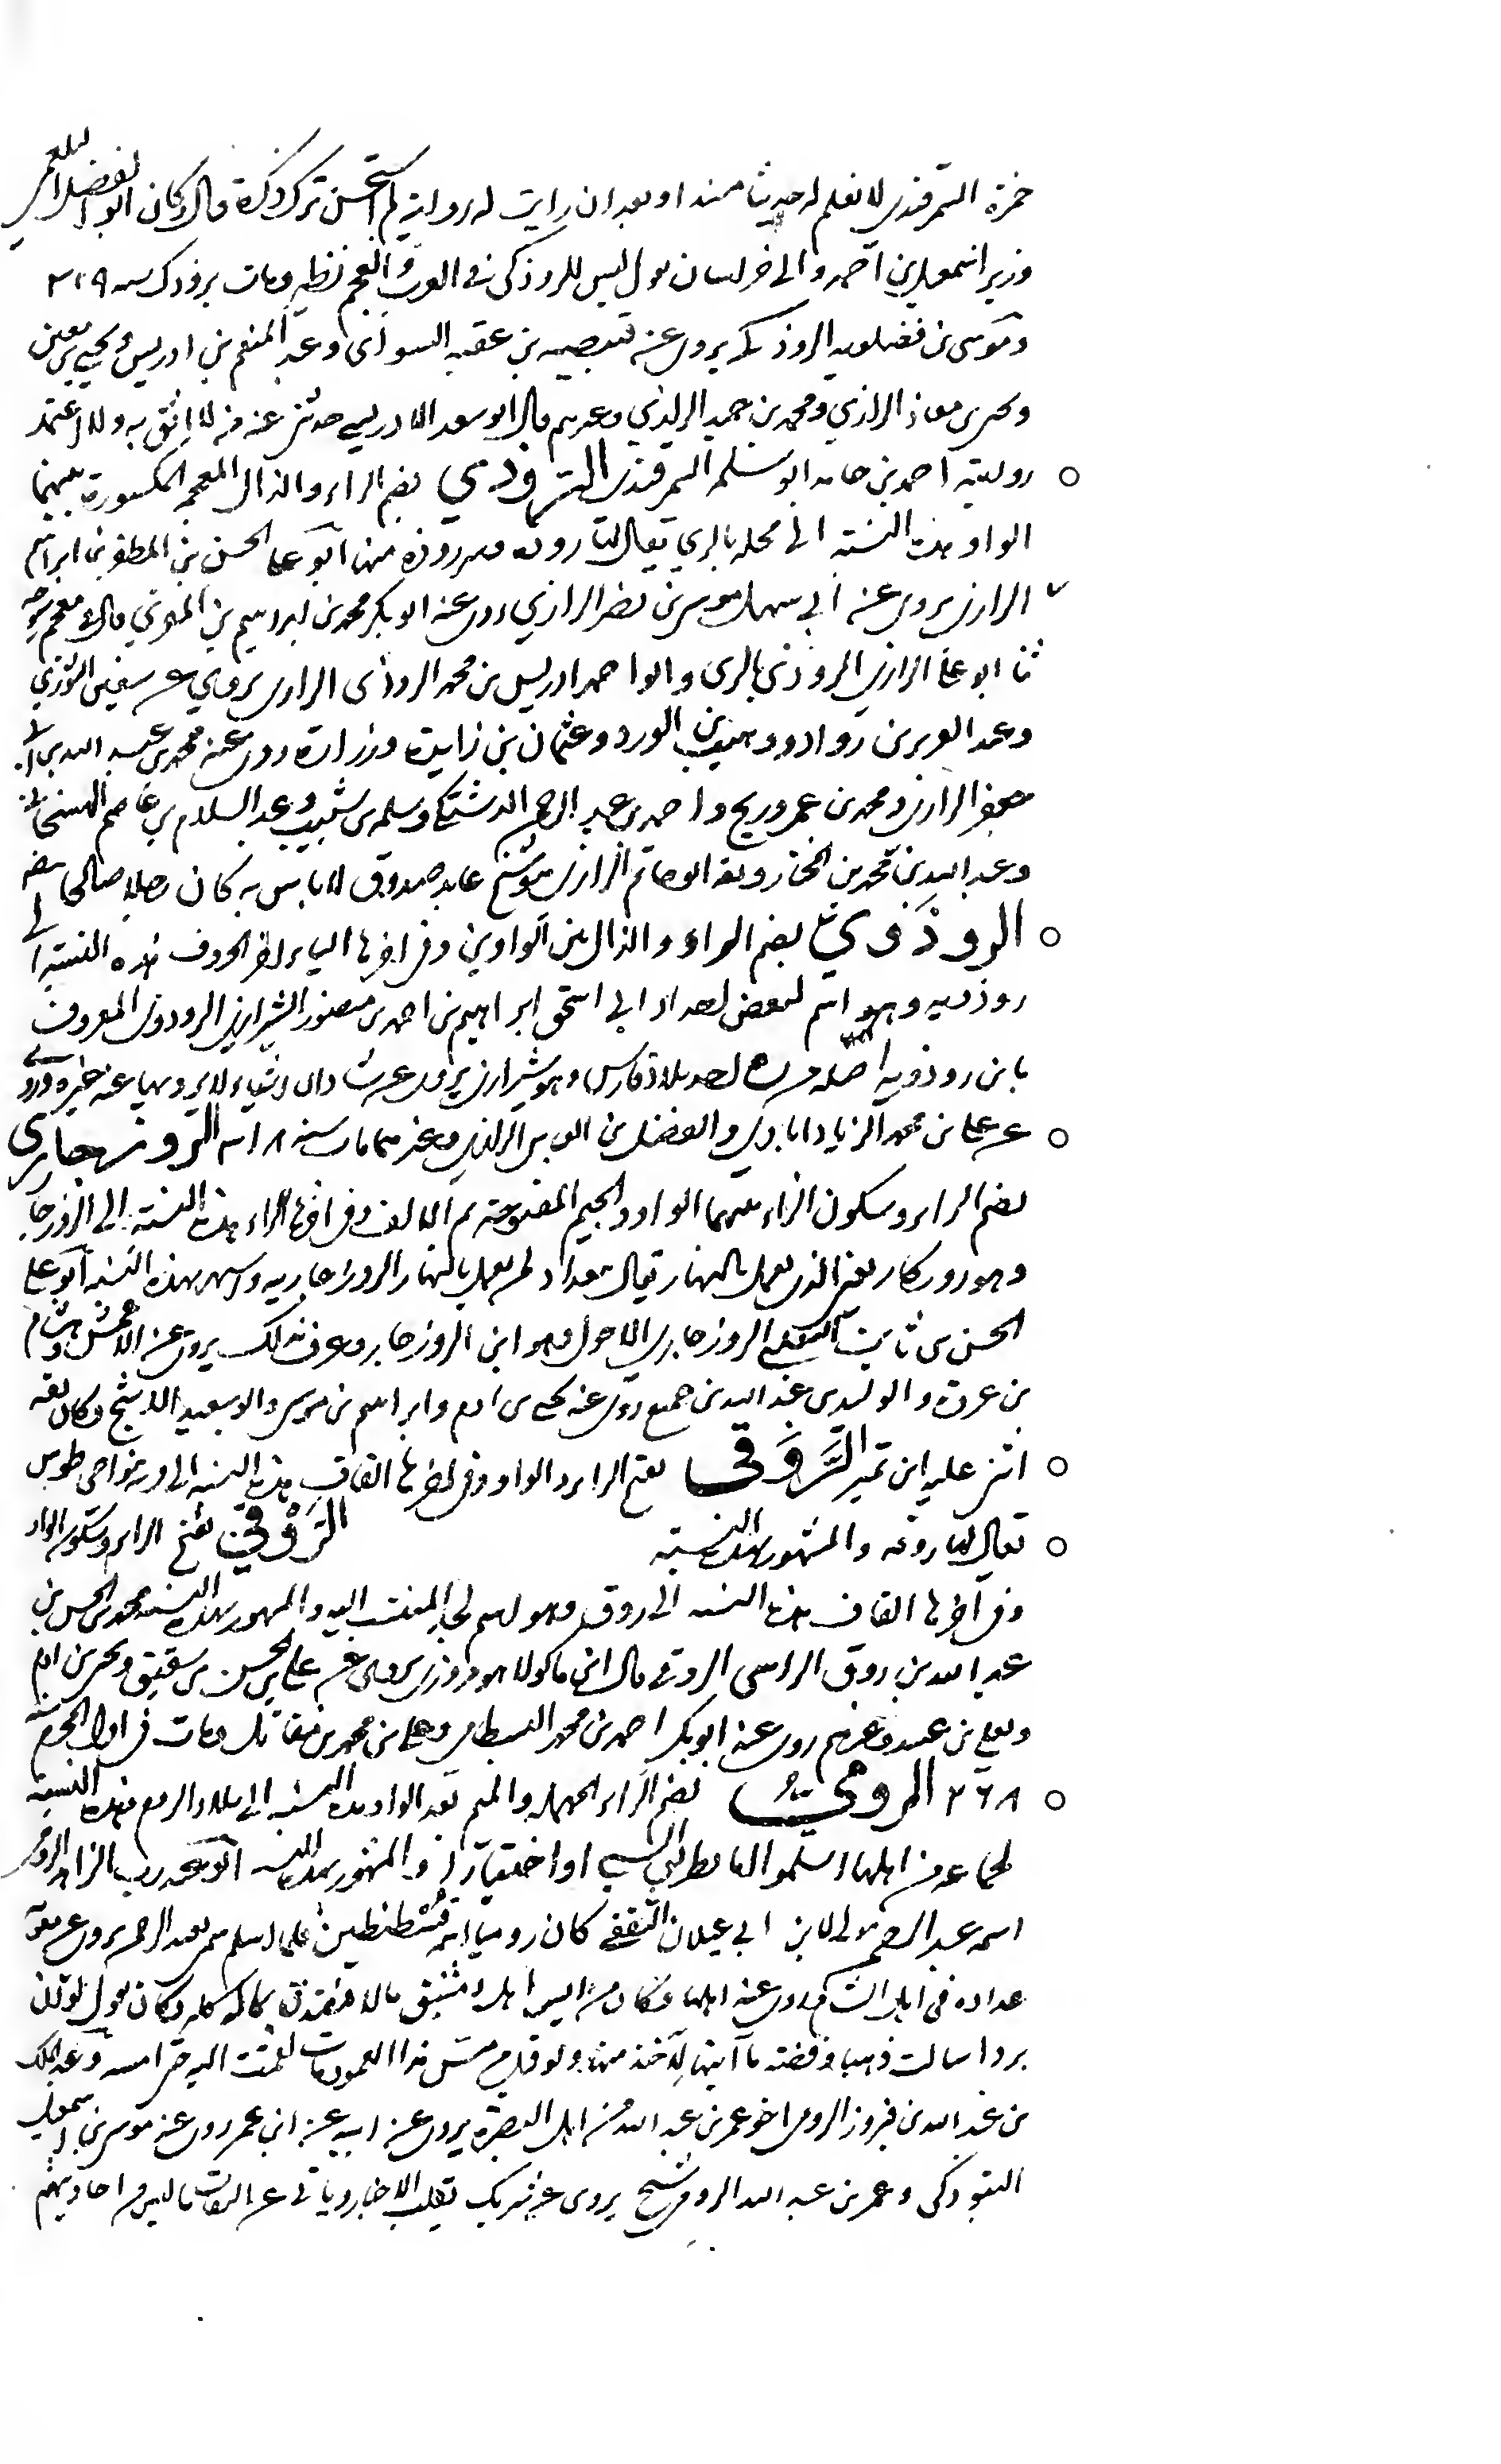 حمزة السمرقندي لا نعلم له حديثا مسندا وبعد ان رايت له رواية لم استحسن ترك ذكره قال وكان ابو الفضل البلعمي
وزير اسمعيل بن احمد والي خراسان يقول ليس للروذكي في العرب والعجم نظير ومات بروذك سنه ٣٢٩
وموسى بن فضلويه الروذكي يروي عنه قبيصه بن عقبه السوائي وعبد المنعم بن ادريس ويحيى بن معين
ويحيى بن معاذ الرازي ومحمد بن حميد الرازي وغيرهم قال ابو سعد الادريسي حدثني عنه من لا اثق به ولا اعتمد
روايته احمد بن حامد ابو سلمه السمرقندي الروذي بضم الراء والذال المعجمه المكسورة بينهما
الواو هذه النسبة الى محله بالري يقال لها روده منها ابو علي الحسن بن المظفر بن ابراهيم
الرازي يروي عن ابي سهل موسى بن نصر الرازي روى عنه ابو بكر محمد بن ابراهيم بن المقري وقال في معجم شيوخه
ثنا ابو علي الرازي الروذي بالري وابو احمد ادريس بن محمد الروذي الرازي يروي عن سفيان الثوري
وعبد العزيز بن رواد ووهيب بن الورد وعثمان بن زايدة وزرارة روى عنه محمد بن عبد الله بن ابي
جعفر الرازي ومحمد بن عمرو زنيج واحمد بن عبد الرحمن الدشتكي وسلمه بن شبيب وعبد السلام بن عاصم الهسنجاني
وعبد الله بن محمد بن المختار وثقه ابو حاتم الرازي هو شيخ عابد صدوق لا باس به كان رجلا صالحا
الروذوي بضم الراء والذال بين الواوين وفي اخرها الياء اخر الحروف هذه النسبة الى
روذويه وهو اسم لبعض اجداد ابي اسحق ابراهيم بن احمد بن منصور الشيرازي الروذوي المعروف
بابن روذويه اصله من بلاد فارس وهو شيرازي يروي عن شاذان اشياء لا يرويها عنه غيره وروى
عن علي بن محمد الزياداباذي والفضل بن العباس الرازي وغيرهما مات سنه ٣١٨ الروزجاري
بضم الراء وسكون الزاء بينهما الواو والجيم المفتوحه ثم الالف وفي اخرها الراء هذه النسبة الى الروزجار
وهو روزكار يعني الذي يعمل بالنهار يقال ببغداد لمن يعمل بالنهار الروزجاريه واشتهر بهذه النسبه ابو علي
الحسن بن ثابت التغلبي الروزجاري الاحول وهو ابن الروزجار وعرف بذلك يروي عن الاعمش وهشام
بن عروة والوليد بن عبد الله بن جميع روى عنه يحيى بن ادم وابراهيم بن موسى وابو سعيد الاشج وكان ثقه
اثنى عليه ابن نمير الروقي بفتح الراء والواو وفي اخرها القاف هذه النسبه الى قريه بنواحي طوس
يقال لها روقه والمشهور بهذه النسبة الروقي بفتح الراء وسكون الواو
وفي اخرها القاف هذه النسبه الى روق وهو اسم لجد المنتسب اليه والمشهور بهذه النسبه محمد بن الحسن بن
عبد الله بن روق الراسبي الروقي قال ابن ماكولا هو مروزي يروي عن علي بن الحسن بن شقيق ويحيى بن ادم
ويعلى بن عبيد وغيرهم روى عنه ابو بكر احمد بن محمد البسطامي وعلي بن محمد بن مقاتل ومات في اول المحرم سنة
٢٦٨ الرومي بضم الراء المهمله والميم بعد الواو هذه النسبه الى بلاد الروم هذه النسبه
لجماعه من اهلها اسلموا اما بطريق السبي او اختيارا والمشهور بهذه النسبه ابو عبد رب الزاهد الرومي
اسمه عبد الرحمن مولى لابن ابي عيلان الثقفي كان روميا اسمه قسطنطين فلما اسلم سمي بعبد الرحمن يروي عن معويه
عداده في اهل الشام روى عنه اهلها وكان من ايسر اهل دمشق مالا فتصدق بماله كله وكان يقول لو ان
بردا سالت ذهبا وفضه ما اتيتها لآخذ منها ولو قيل من مس هذا العمود مات لقمت اليه حتى امسه وعبد الملك
بن عبد الله بن فيروز الرومي اخو عمر بن عبد الله من اهل البصرة يروي عن ابيه عن ابن عمر روى عنه موسى بن اسمعيل
التبوذكي وعمر بن عبد الله الرومي شيخ يروي عن شريك يقلب الاخبار وياتي عن الثقات ما ليس من احاديثهم